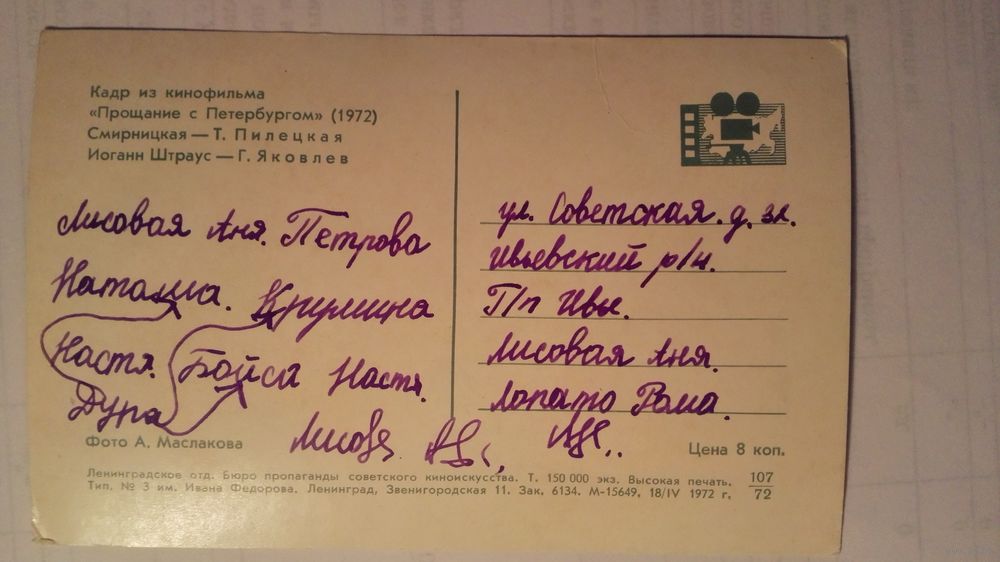 Кадр из кинофильма
«Прощание с Петербургом» (1972)
Смирницкая — Т. Пилецкая
Иоганн Штраус — Г. Яковлев
Лисовая Аня. Петрова
Наташа. Крумина
Настя. Бойса Настя.
Дура
Лисовая
ул. Советская. д. 31.
Ивьевский р/н.
П/п Ивье.
Лисовая Аня.
Лопато Рома.
Фото А. Маслакова
Цена 8 коп.
Ленинградское отд. Бюро пропаганды советского киноискусства. Т. 150 000 экз. Высокая печать.
Тип. № 3 им. Ивана Федорова. Ленинград, Звенигородская 11. Зак. 6134. М-15649. 18/IV 1972 г.
107
72